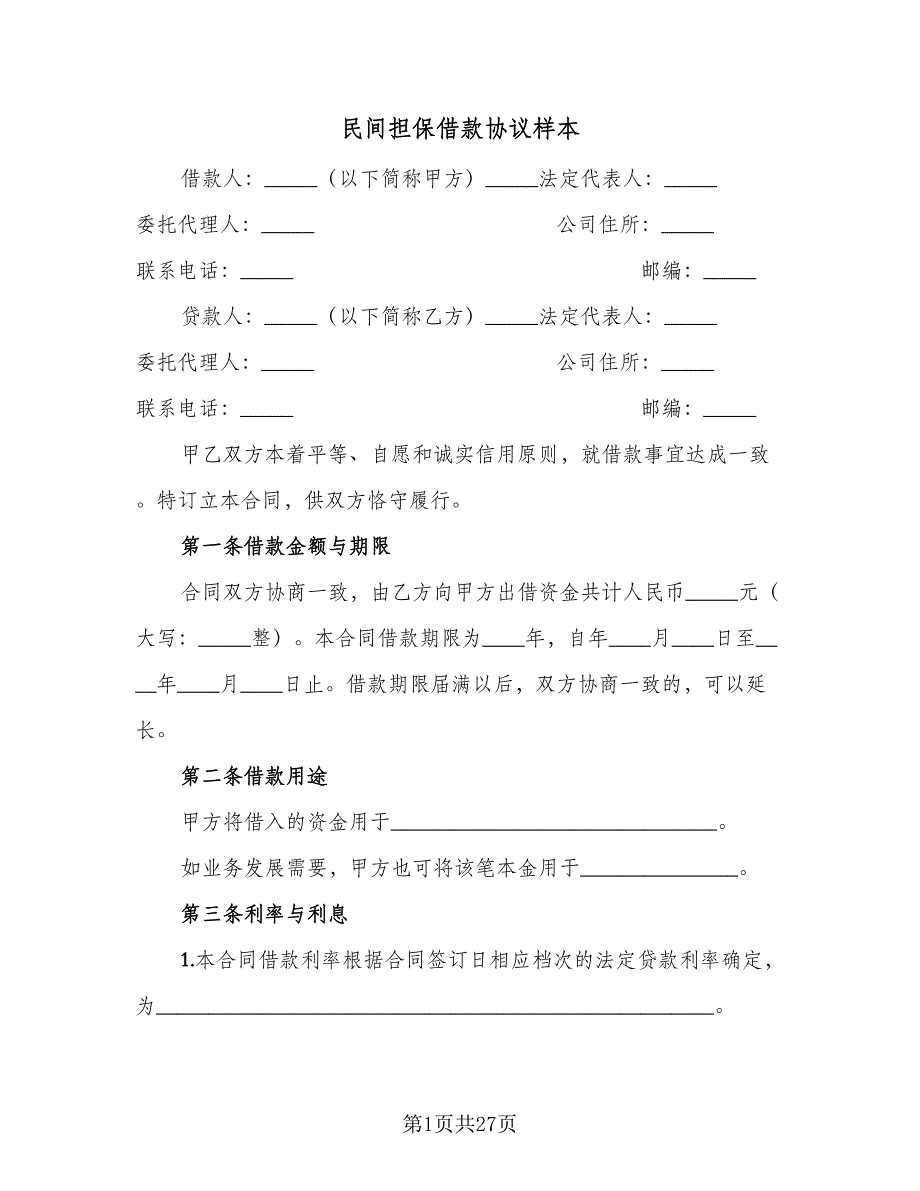 民间担保借款协议样本
借款人：_____（以下简称甲方）_____法定代表人：_____
委托代理人：_____ 公司住所：_____
联系电话：_____ 邮编：_____
贷款人：_____（以下简称乙方）_____法定代表人：_____
委托代理人：_____ 公司住所：_____
联系电话：_____ 邮编：_____
甲乙双方本着平等、自愿和诚实信用原则，就借款事宜达成一致
。特订立本合同，供双方恪守履行。
第一条借款金额与期限
合同双方协商一致，由乙方向甲方出借资金共计人民币_____元（
大写：_____整）。本合同借款期限为____年，自年____月____日至__
__年____月____日止。借款期限届满以后，双方协商一致的，可以延
长。
第二条借款用途
甲方将借入的资金用于_______________________________。
如业务发展需要，甲方也可将该笔本金用于_______________。
第三条利率与利息
1.本合同借款利率根据合同签订日相应档次的法定贷款利率确定，
为_____________________________________________________。
第1页共27页